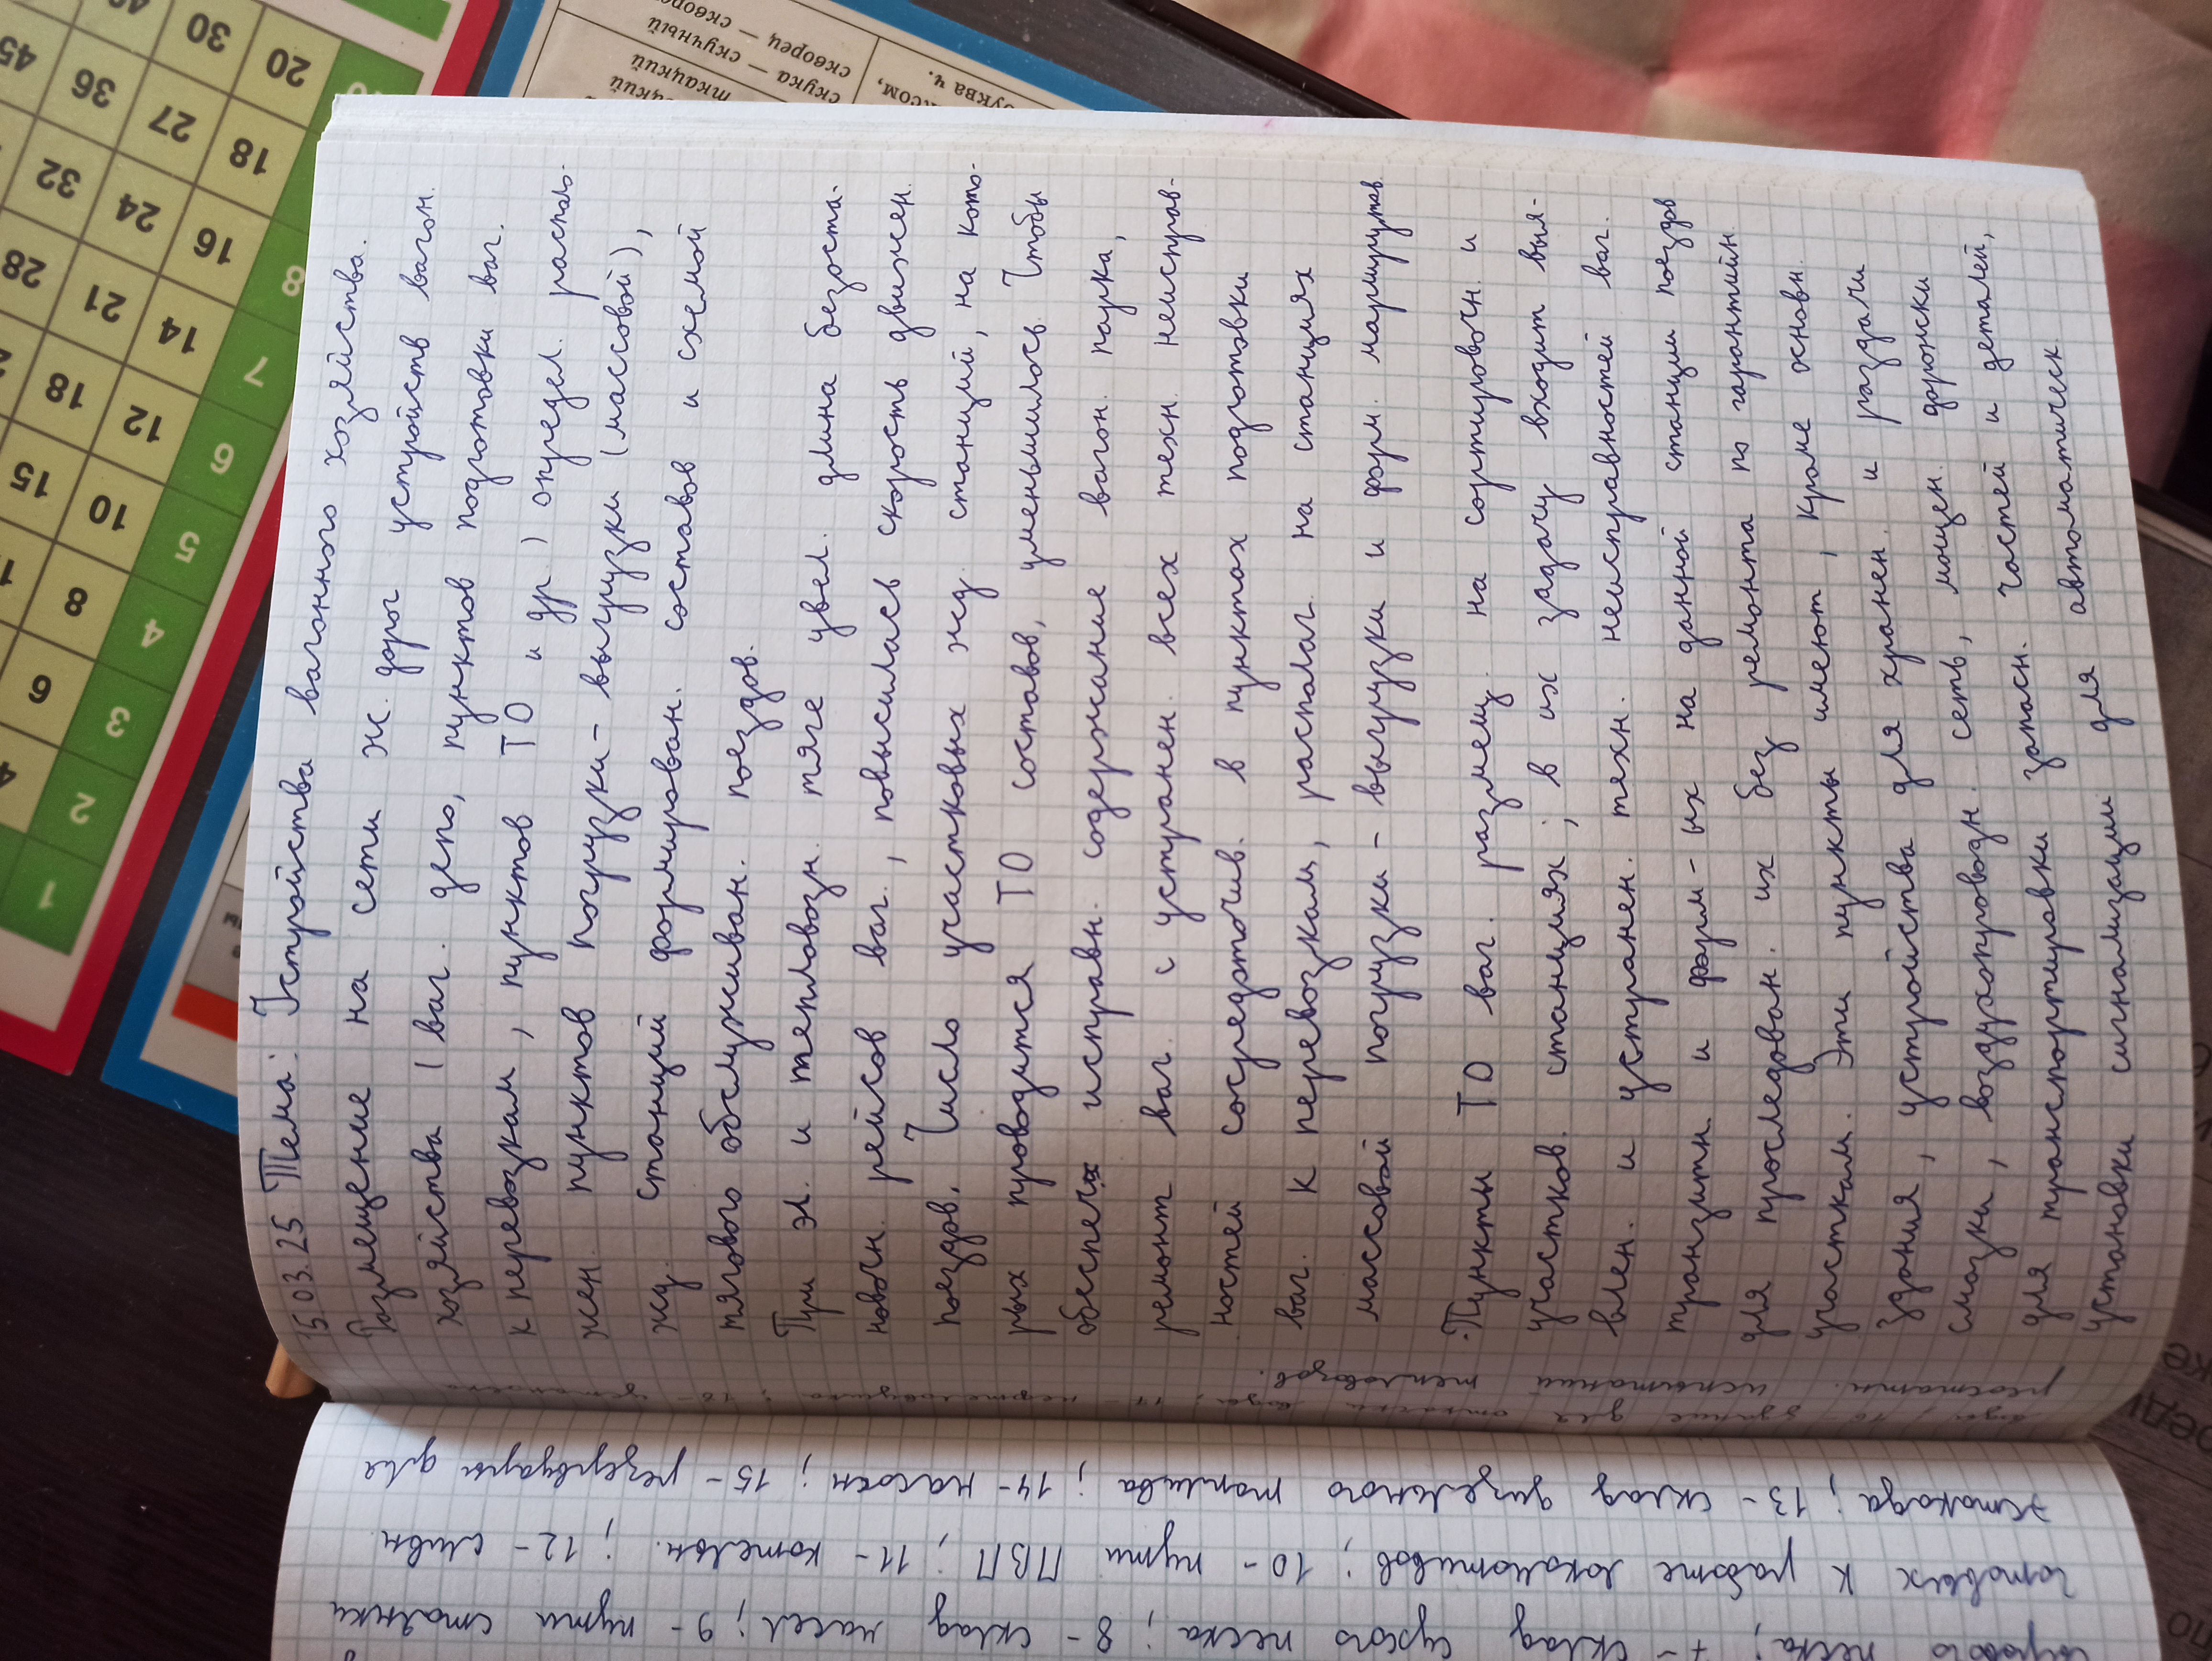 15.03.25 Тема: Устройства вагонного хозяйства.
Размещение на сети ж. дорог устройств вагон.
хозяйства (ваг. депо, пунктов подготовки ваг.
к перевозкам, пунктов ТО и др.) определ. располо-
жен. пунктов погрузки-выгрузки (массовой),
жд. станций формирован. составов и схемой
тягового обслуживан. поездов.
При эл. и тепловозн. тяге увел. длина безоста-
новочн. рейсов ваг., повысилась скорость движен.
поездов. Число участковых жд. станций, на кото-
рых проводится ТО составов, уменьшилось. Чтобы
обеспеч. исправн. содержание вагон. парка,
ремонт ваг. с устранен. всех техн. неисправ-
ностей сосредоточив. в пунктах подготовки
ваг. к перевозкам, располаг. на станциях
массовой погрузки-выгрузки и форм. маршрутов.
·Пункты ТО ваг. размещ. на сортировочн. и
участков. станциях; в их задачу входит выя-
влен. и устранен. техн. неисправностей ваг.
транзитн. и форм-ых на данной станции поездов
для проследован. их без ремонта по гарантийн.
участкам. Эти пункты имеют, кроме основн.
здания, устройства для хранен. и раздачи
смазки, воздухопроводн. сеть, мощен. дорожки
для транспортировки запасн. частей и деталей,
установки сигнализации для автоматическ
реостатн. испытаний тепловозов.
воды; 16- здание для
эстокада; 13- склад дизельного топлива; 14- насосн; 15- резервуары для
готовых к работе локомотивов; 10- пути ПВП; 11- котельн.; 12- сливн.
сырого песка; 7- склад сухого песка; 8- склад масел; 9- пути стоянки
20
30
18
27
36
45
16
24
32
14
21
28
12
18
10
15
8
6
4
8
7
6
5
4
3
2
1
скворец —
скука — скучный
ткацкий
буква ч.